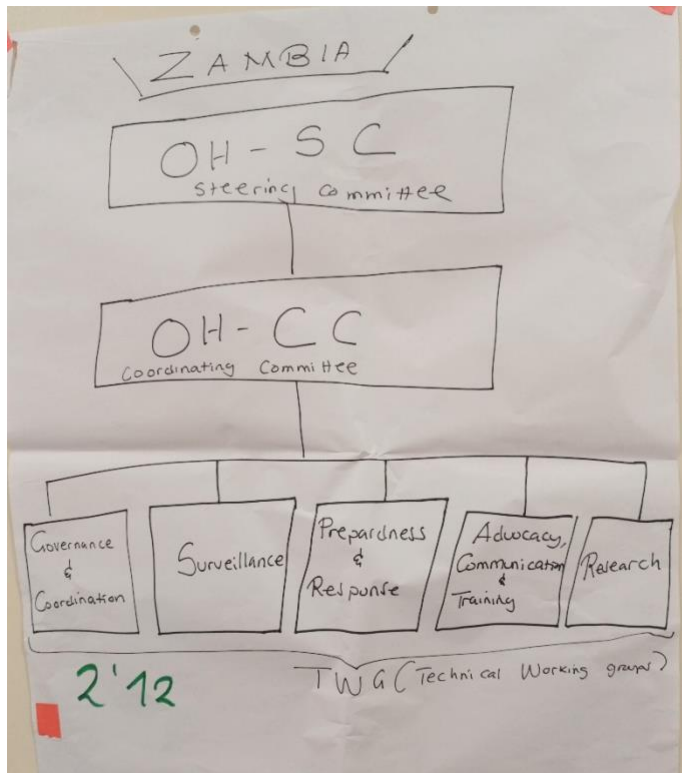 ZAMBIA
OH - SC
Steering Committee
OH - CC
Coordinating Committee
Governance
&
Coordination
Surveillance
Prepardness
&
Response
Advocacy,
Communication
&
Training
Research
TWG (Technical Working groups)
2'12